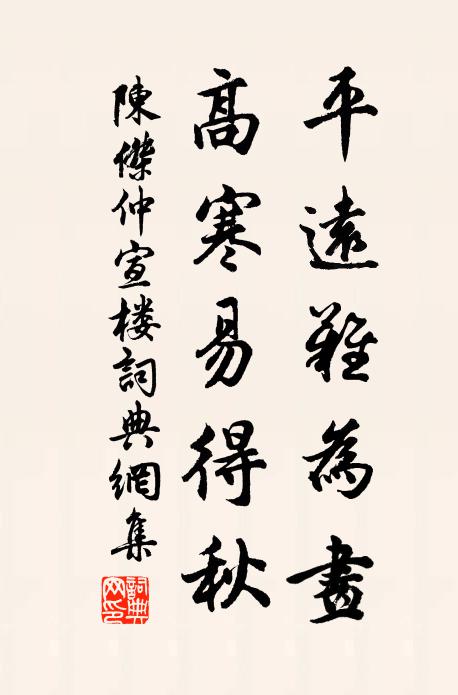 平遠難為畫
高寒易得秋
陳傑仲宣楼詞典網集
詞典网印